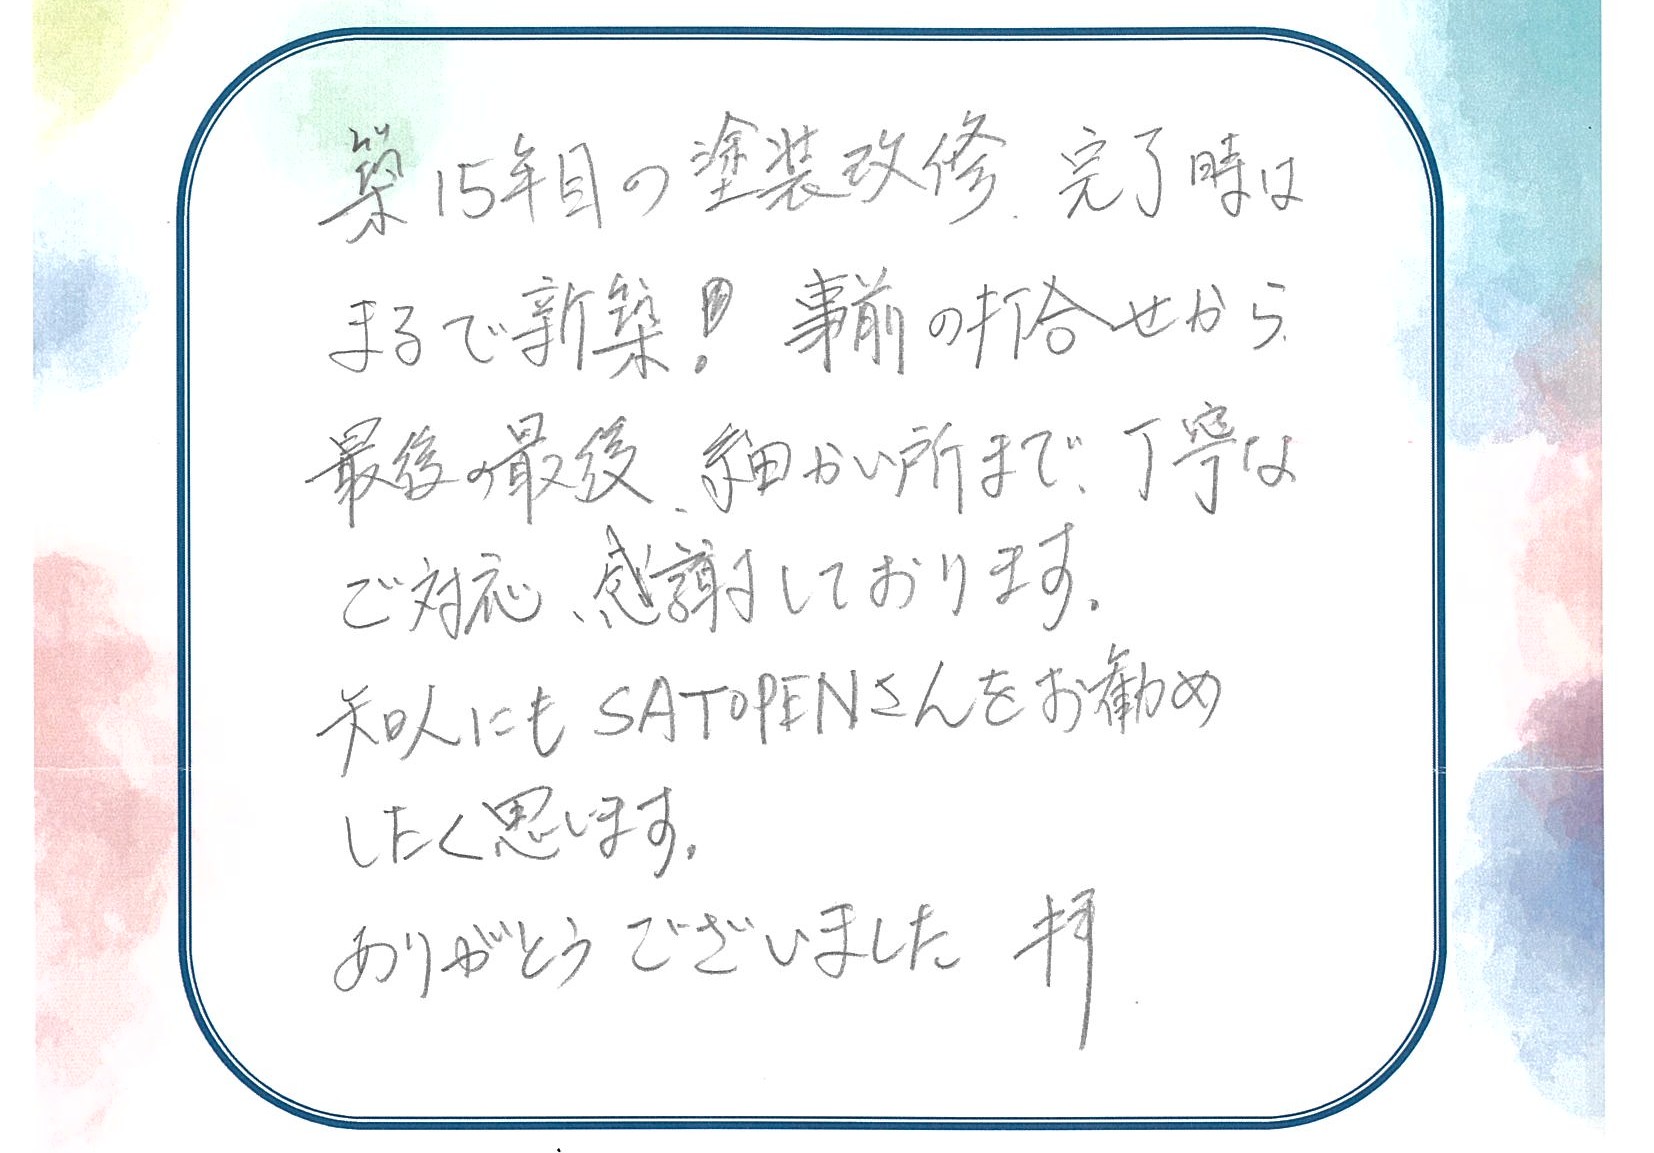 築15年目の塗装改修、完了時は
まるで新築！ 事前の打合せから
最後の最後、細かい所まで、丁寧な
ご対応、感謝しております。
知人にもSATOPENさんをお勧め
したく思います。
ありがとうございました 拝